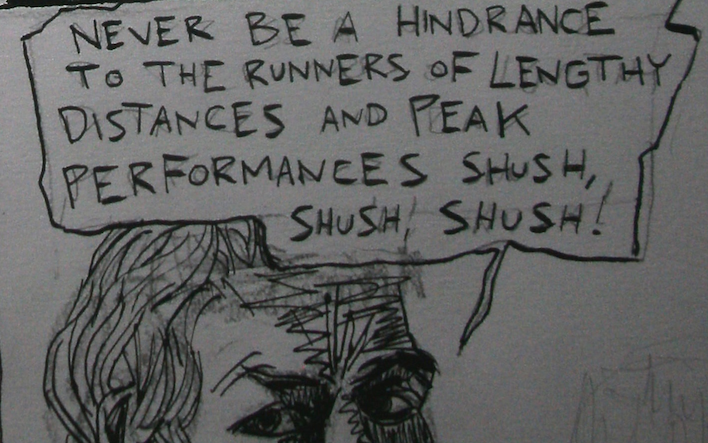 NEVER BE A HINDRANCE
TO THE RUNNERS OF LENGTHY
DISTANCES AND PEAK
PERFORMANCES SHUSH,
SHUSH, SHUSH!